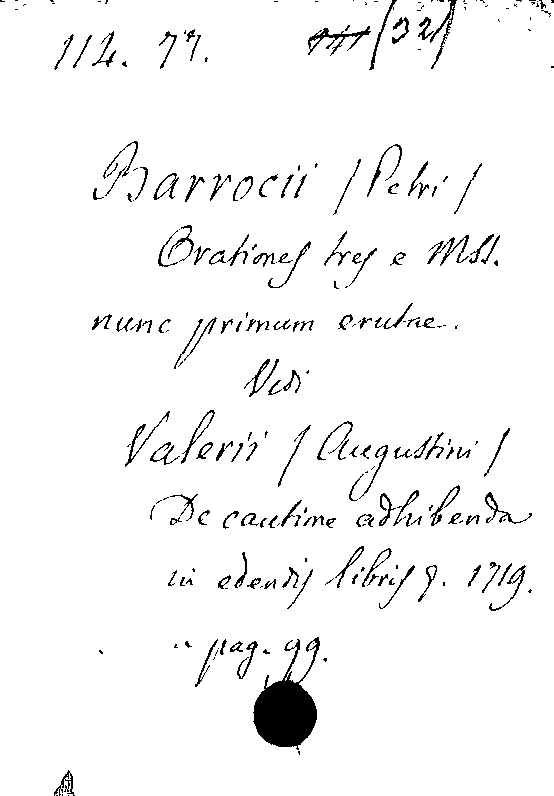 114. 77. (32)
Barrocii (Petri)
Orationes tres e MSS.
nunc primum erutae.
Vedi
Valerii (Augustini)
De cautione adhibenda
in edendis libris 9. 1719.
" pag. 99.